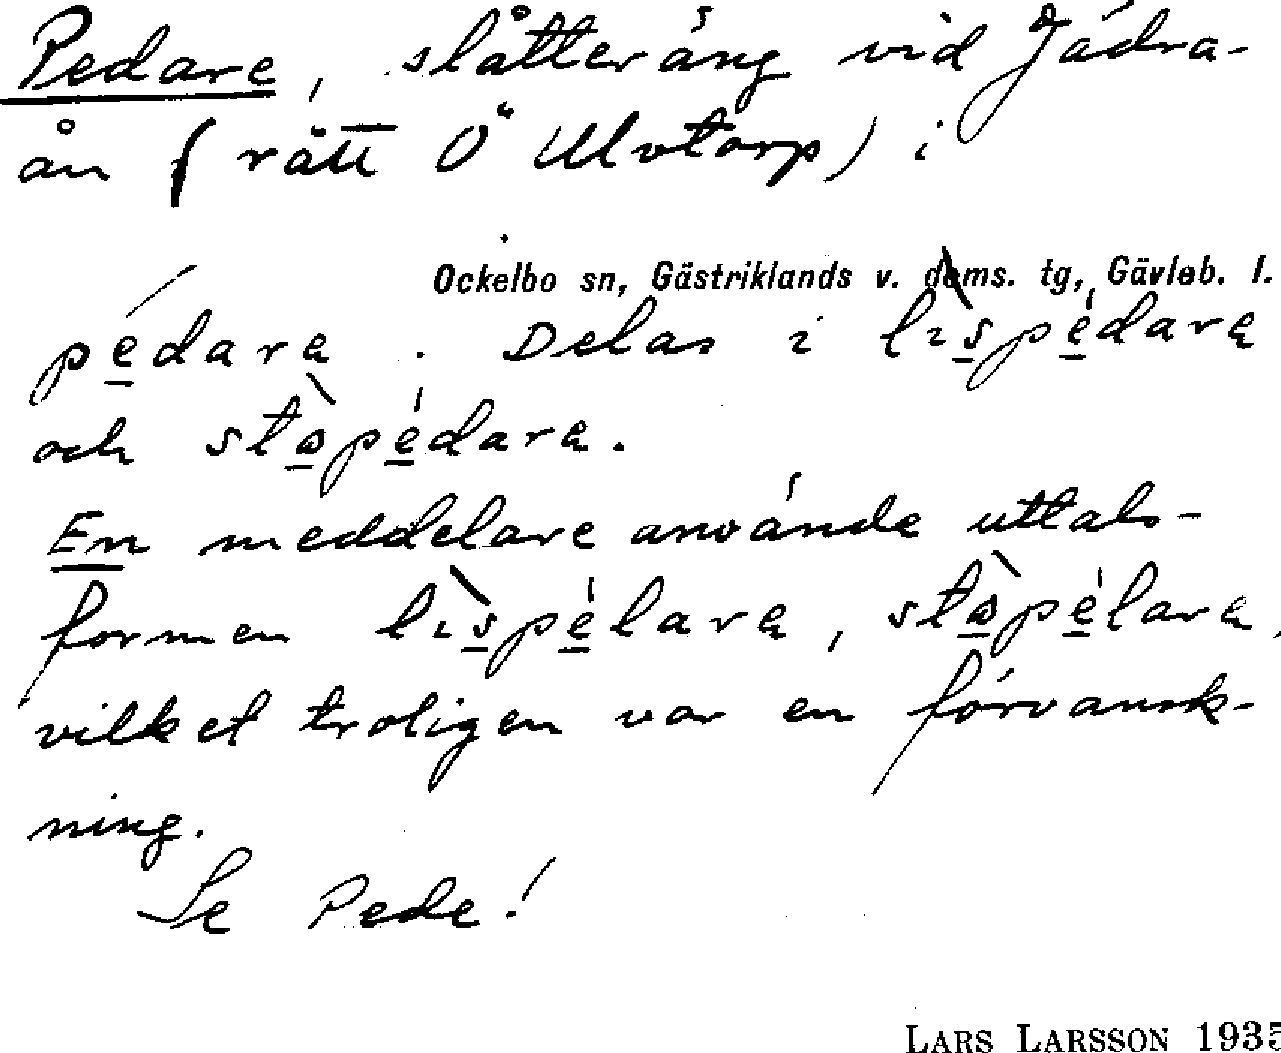 Pedare, slåtteräng vid Jädra-
ån (rätt Ö Ulvtorp) i
Ockelbo sn, Gästriklands v. doms. tg, Gävleb. l.
pédara. Delas i lìspédara
och stòpédara.
En meddelare använde uttals-
formen lìspélara, stòpélara,
vilket troligen var en förvansk-
ning.
Se Pede!
LARS LARSSON 1935